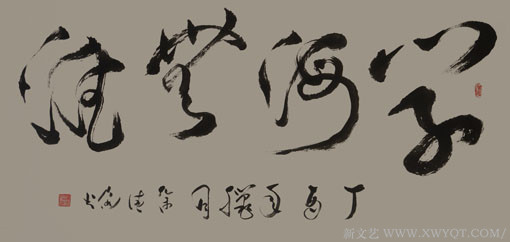 學海無涯
丁酉年臘月徐
新文艺 WWW.XWYQT.COM